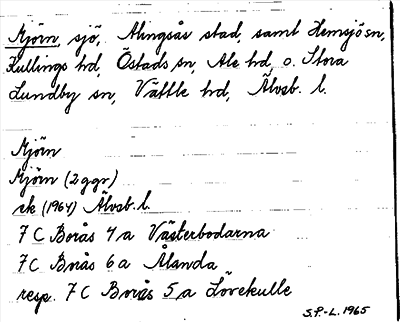 Mjörn, sjö, Alingsås stad, samt Hemsjö sn,
Kullings hd, Östads sn, Ale hd, o. Stora
Lundby sn, Vättle hd, Älvsb. l.
Mjörn
Mjörn (2 ggr)
ek (1964) Älvsb. l.
7 C Borås 4 a Västerbodarna
7 C Borås 6 a Ålanda
resp. 7 C Borås 5 a Lövekulle
S.P.-L. 1965